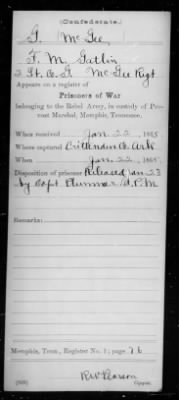 (Confederate.)
G. McGee,
F. M. Gatlin
2 Lt. Co. A McGee Regt
Appears on a register of
Prisoners of War
belonging to the Rebel Army, in custody of Pro-
vost Marshal, Memphis, Tennessee.
When received Jan. 22, 1865
Where captured Crittenden Co. Ark
When Jan. 22, 1865
Disposition of prisoner Released Jan 23
by Capt Plummer A. P. M
Remarks:
Memphis, Tenn., Register No. 1; page 76
R W Pearson
Copyist.